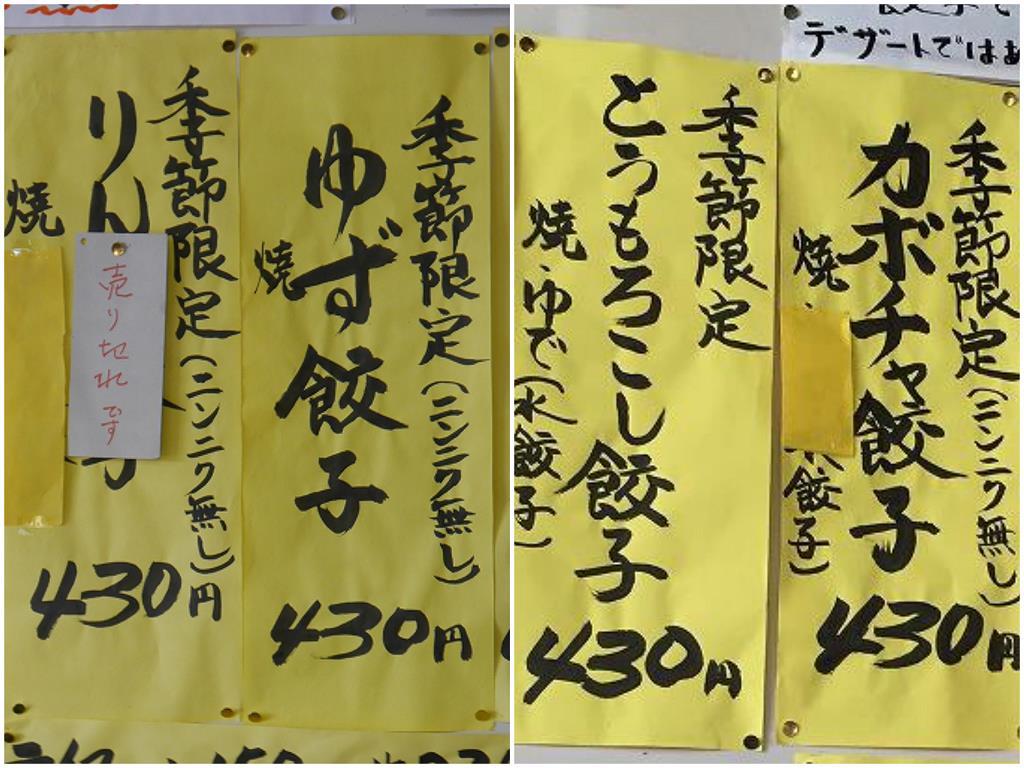 デザートではあ
季節限定(ニンニク無し)
カボチャ餃子
焼・
餃子)
430円
季節限定
とうもろこし餃子
焼・ゆで(水餃子)
430円
季節限定(ニンニク無し)
ゆず餃子
焼
430円
季節限定(ニンニク無し)
りん
売り切れです
焼
430円